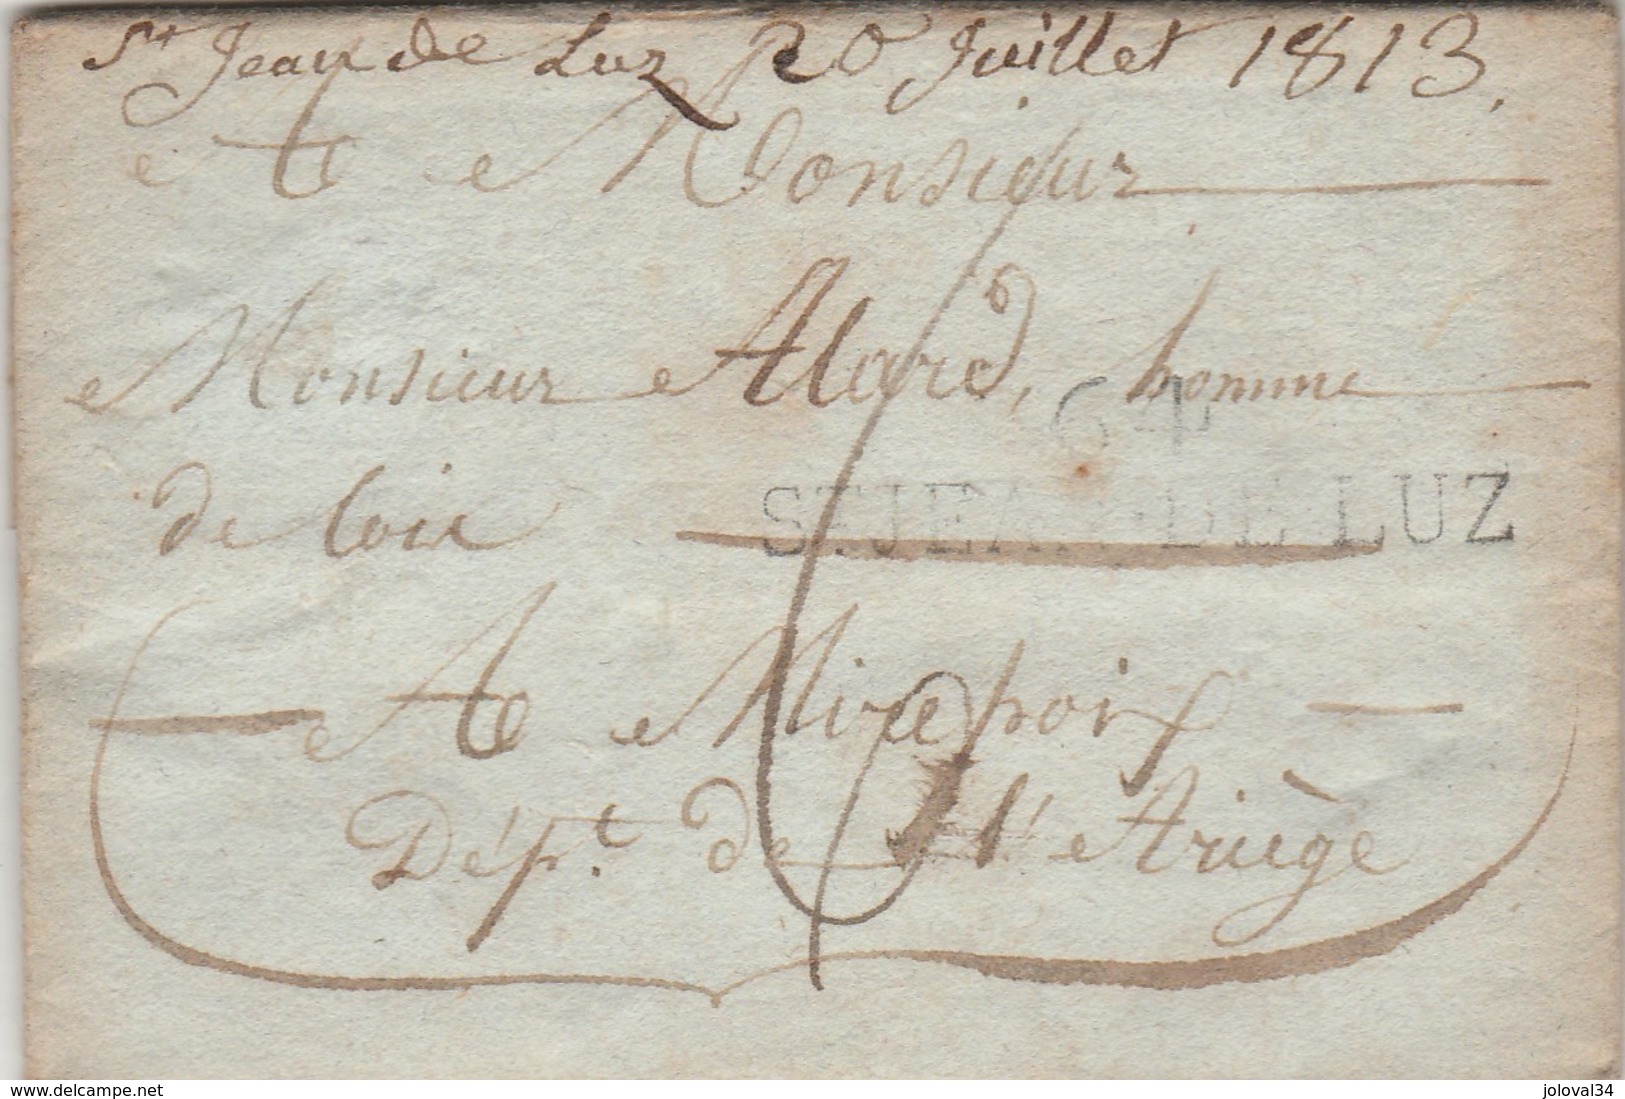 St Jean de Luz 20 Juillet 1813.
A Monsieur
Monsieur Alard, homme
64
de Loix
ST. JEAN DE LUZ
6
A Mirepoix
Dépt. de l'Ariège
www.delcampe.net
joloval34